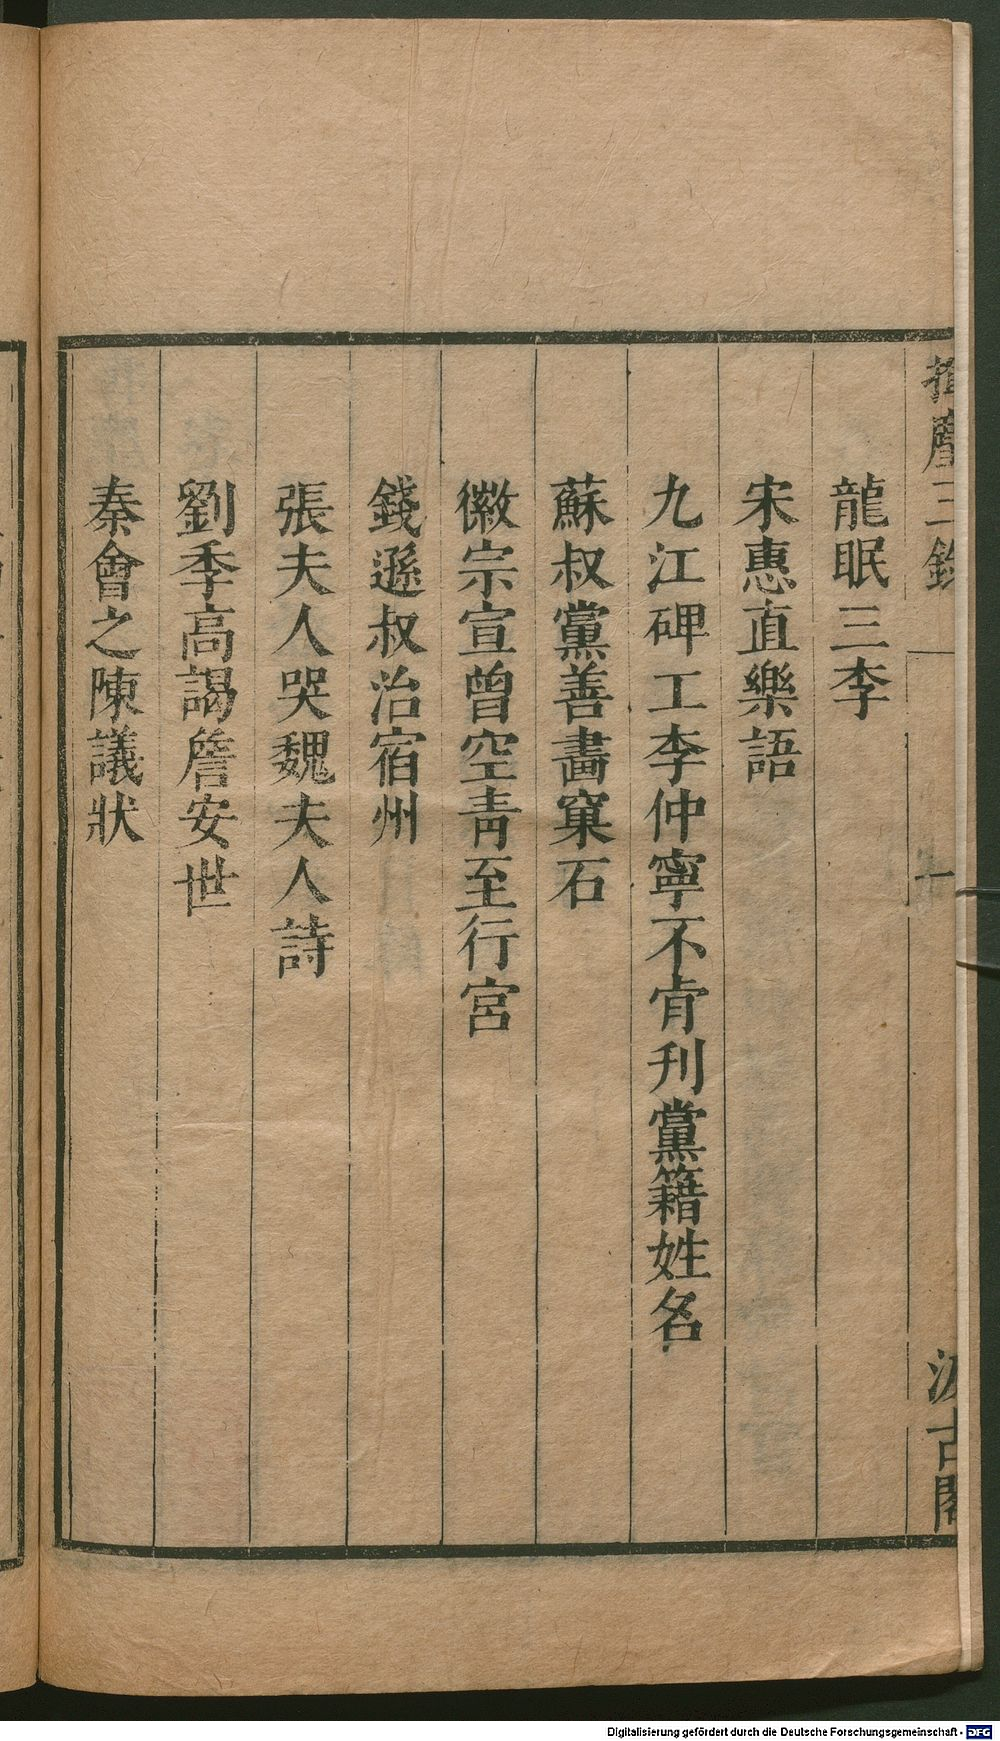 揮麈三錄
一
汲古閣
龍眠三李
宋惠直樂語
九江碑工李仲寧不肯刋黨籍姓名
蘇叔黨善畫窠石
徽宗宣曾空靑至行宮
錢遜叔治宿州
張夫人哭魏夫人詩
劉季高謁詹安世
秦會之陳議狀
Digitalisierung gefördert durch die Deutsche Forschungsgemeinschaft - DFG